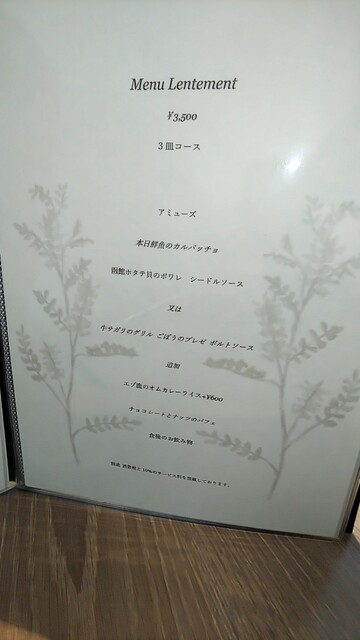 Menu Lentement
¥3,500
3皿コース
アミューズ
本日鮮魚のカルパッチョ
函館ホタテ貝のポワレ シードルソース
又は
牛サガリのグリル ごぼうのブレゼ ポルトソース
追加
エゾ鹿のオムカレーライス+¥600
チョコレートとナッツのパフェ
食後のお飲み物
別途 消費税と10%のサービス料を頂戴しております。